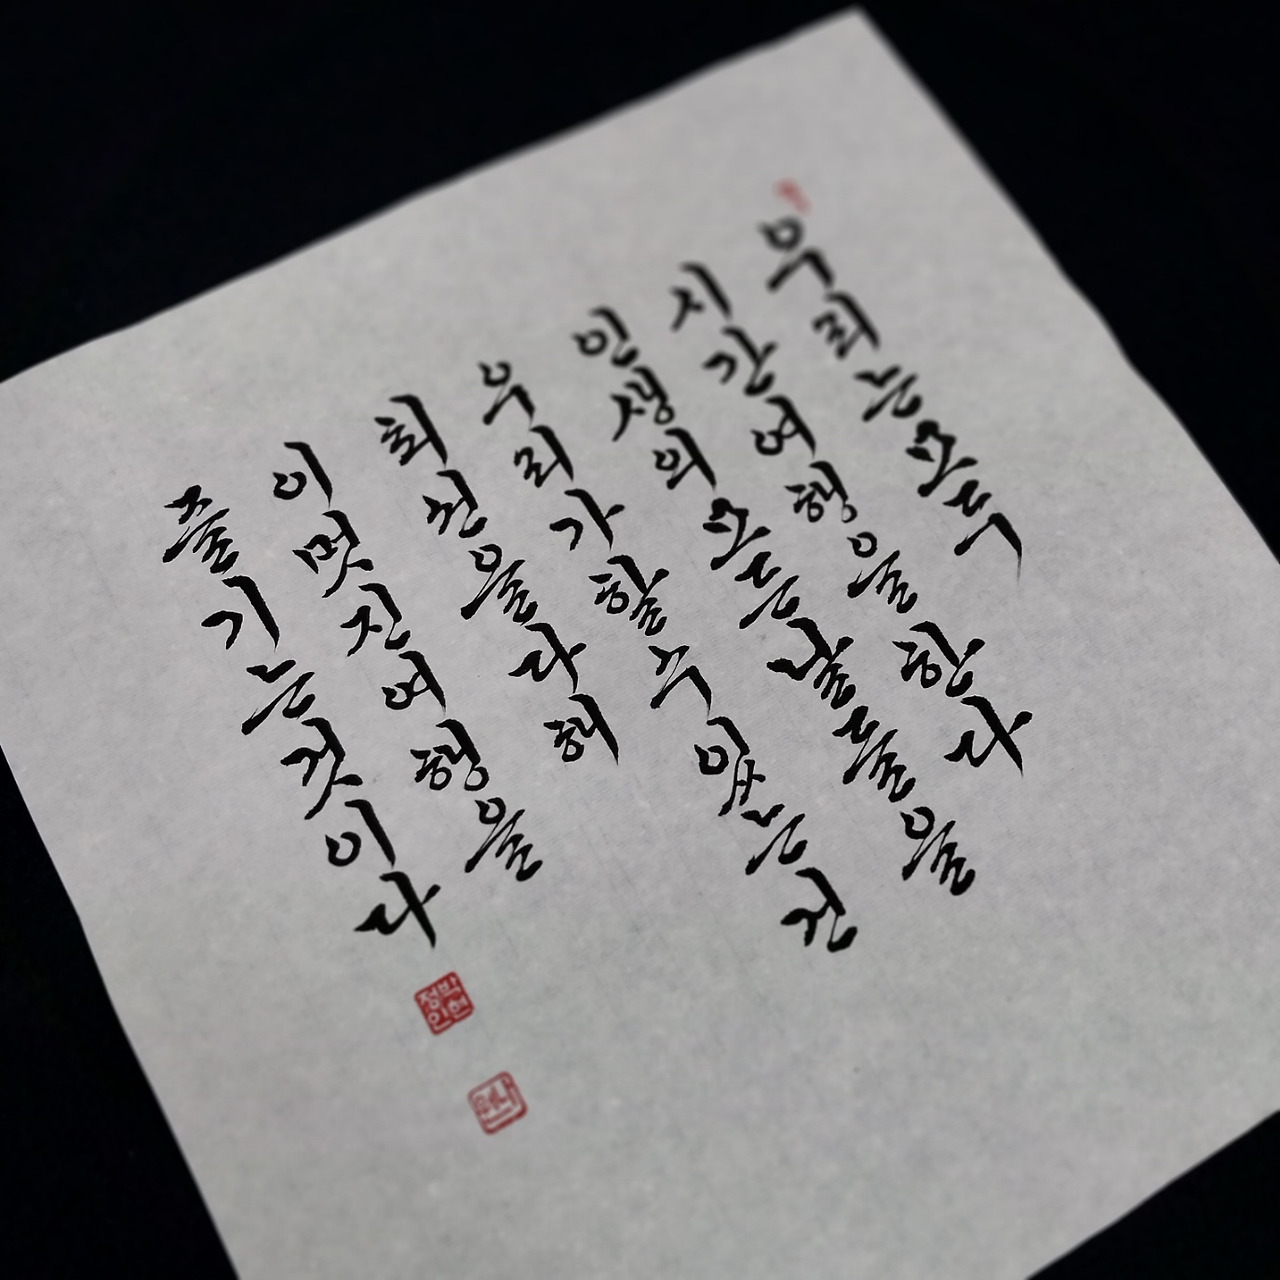 우리는 모두
시간여행을 한다
인생의 모든 날들을
우리가 할 수 있는 건
최선을 다해
이 멋진 여행을
즐기는 것이다
박현
정인